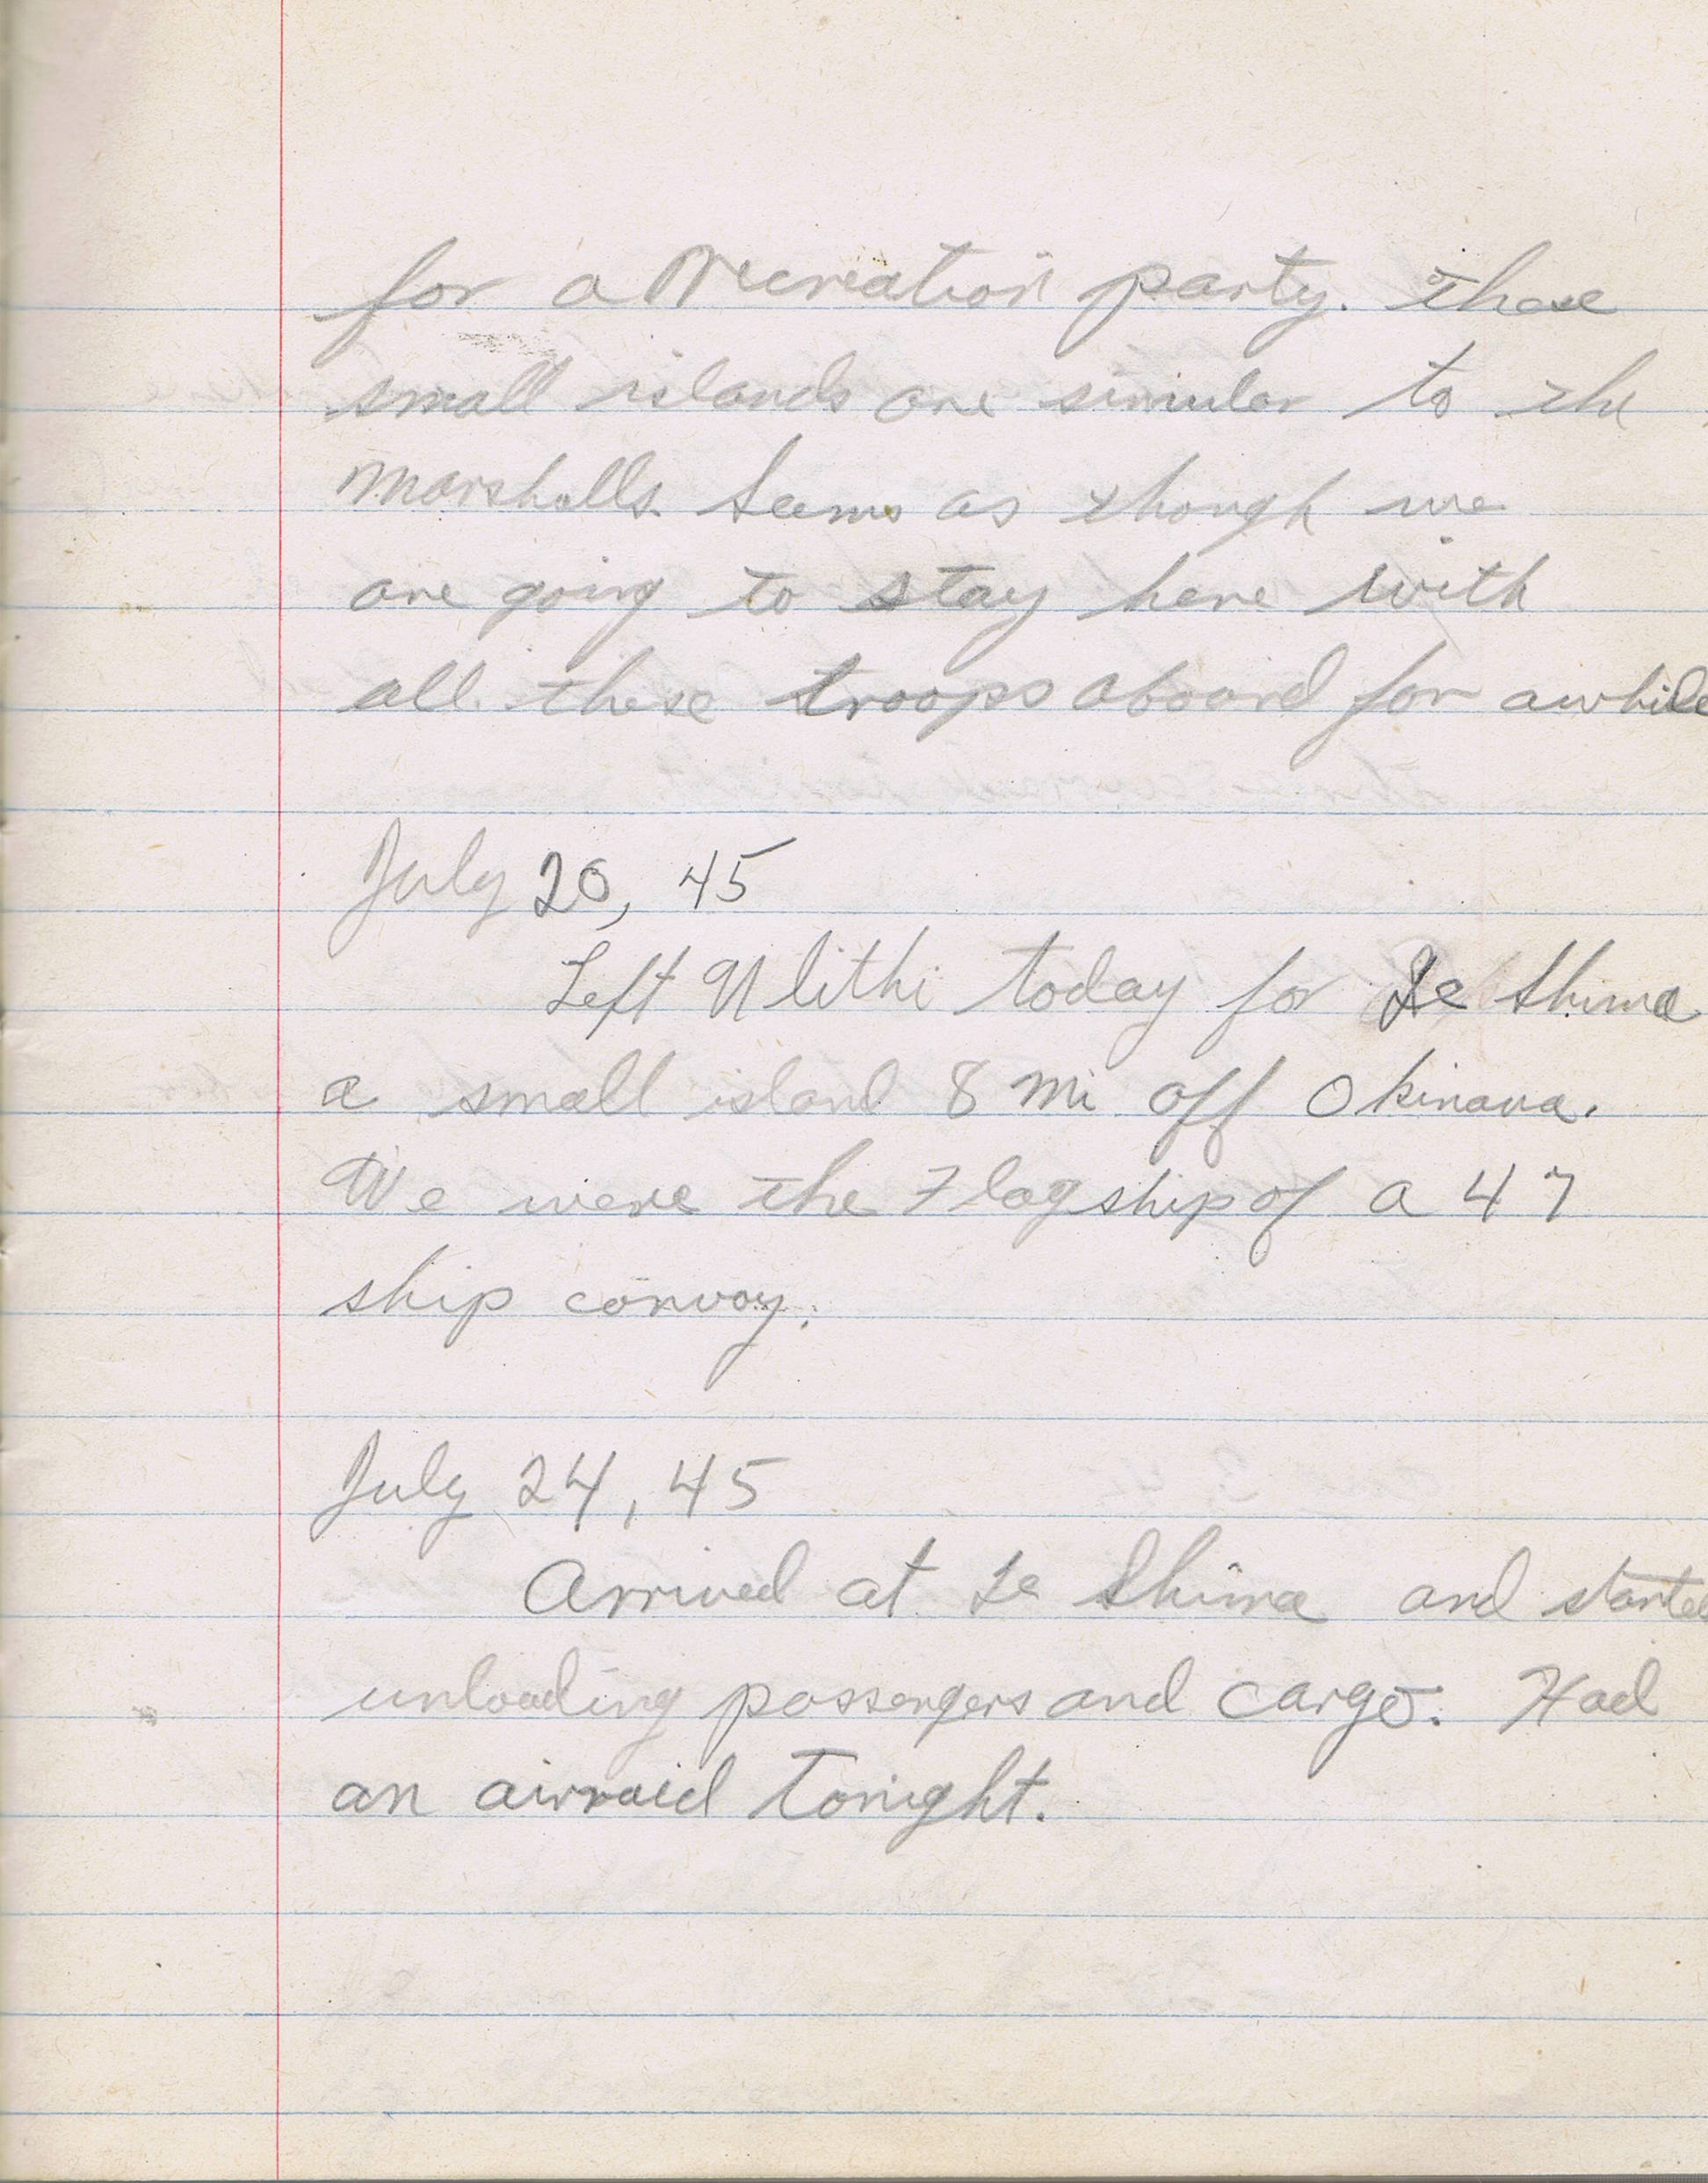 for a recreation party. These
small islands are simular to the
Marshalls. Seems as though we
are going to stay here with
all these troops aboard for awhile
July 20, 45
Left Ulithi today for Ie Shima
a small island 8 mi off Okinawa.
We were the Flagship of a 47
ship convoy.
July 24, 45
Arrived at Ie Shima and started
unloading passengers and cargo. Had
an airraid tonight.